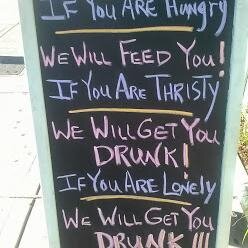 IF YOU ARE HUNGRY
WE WILL FEED YOU!
IF YOU ARE THRISTY
WE WILL GET YOU
DRUNK!
IF YOU ARE LONELY
WE WILL GET YOU
DRUNK!!!